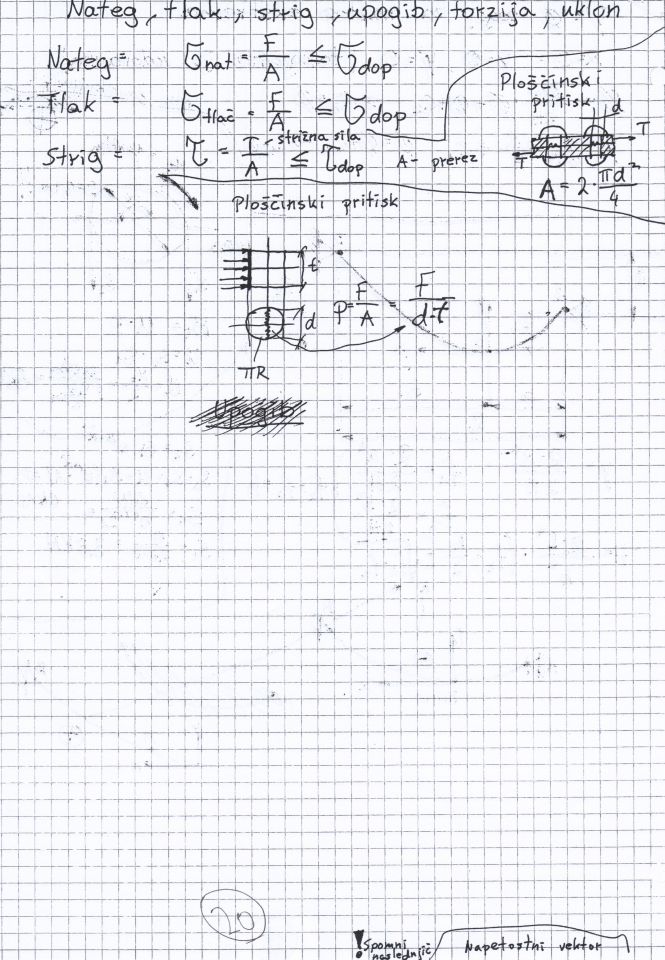 Nateg, tlak, strig, upogib, torzija, uklon
Nateg = σnat = F/A ≤ σdop
Tlak = σtlač = F/A ≤ σdop
Strig = τ = T/A ≤ τdop
strižna sila
A - prerez
Ploščinski
pritisk
d
T
T
A = 2·πd²/4
Ploščinski pritisk
t
d
P = F/A = F/d·t
πR
Upogib
20
! Spomni
naslednjič
Napetostni vektor